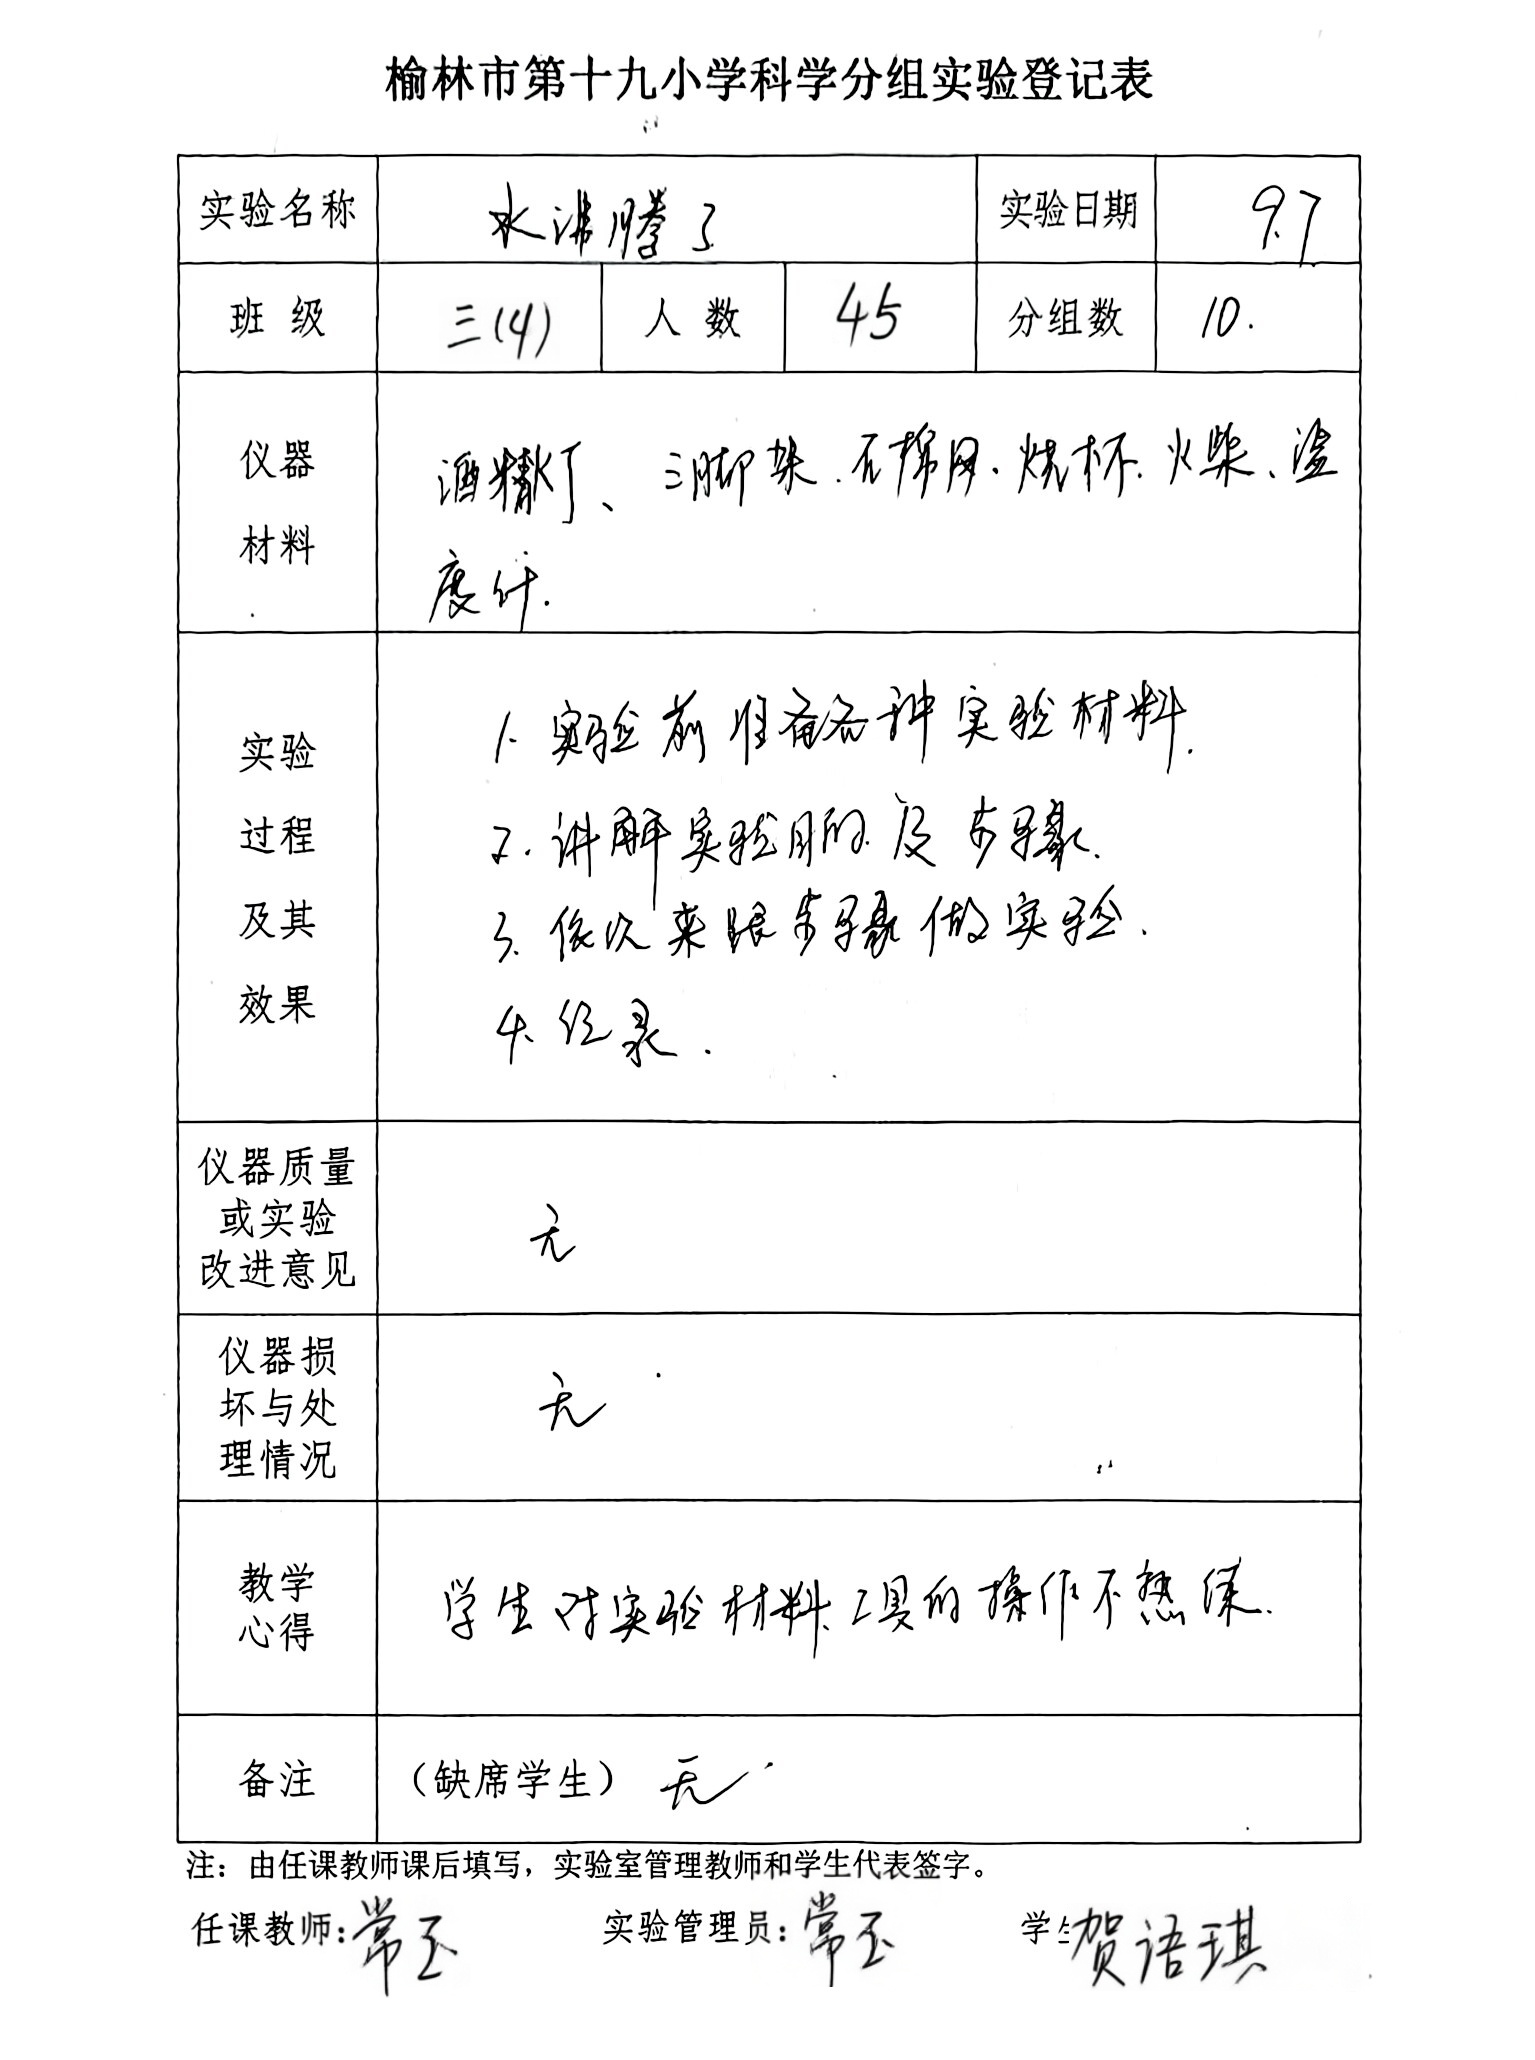 榆林市第十九小学科学分组实验登记表
实验名称 水沸腾了 实验日期 9.7
班级 三(4) 人数 45 分组数 10.
仪器
材料
酒精灯、三脚架.石棉网、烧杯.火柴、温
度计.
实验
过程
及其
效果
1. 实验前准备各种实验材料.
2. 讲解实验目的及步骤.
3. 依次来跟步骤做实验.
4. 记录.
仪器质量
或实验
改进意见
无
仪器损
坏与处
理情况
无
教学
心得
学生对实验材料、工具的操作不熟练.
备注 (缺席学生) 无
注：由任课教师课后填写，实验室管理教师和学生代表签字。
任课教师：常玉 实验管理员：常玉 学生 贺语琪